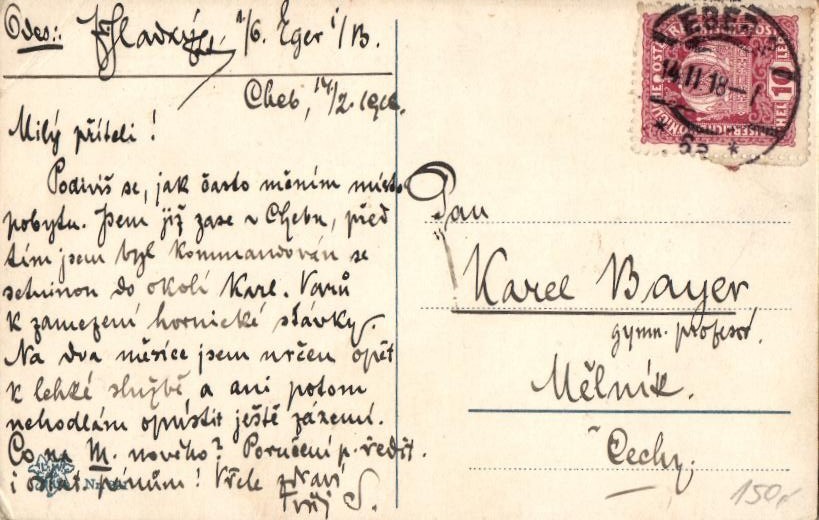 Odes.: J. Hladký, 1/6. Eger i/B.
Cheb, 14/2. 1918.
Milý příteli!
Podivíš se, jak často měním místo
pobytu. Jsem již zase v Chebu, před
tím jsem byl kommandován se
setninou do okolí Karl. Varů
k zamezení hornické stávky.
Na dva měsíce jsem určen opět
k lehké službě, a ani potom
nehodlám opustit ještě zázemí.
Co na M. nového? Poručení p. ředit.
i ostat. pánům! Vřele zdraví
Tvůj
EGER
14.II.18
* 6a *
10
HEL
Pan
Karel Bayer
gymn. professor.
Mělník.
Čechy.
150,-